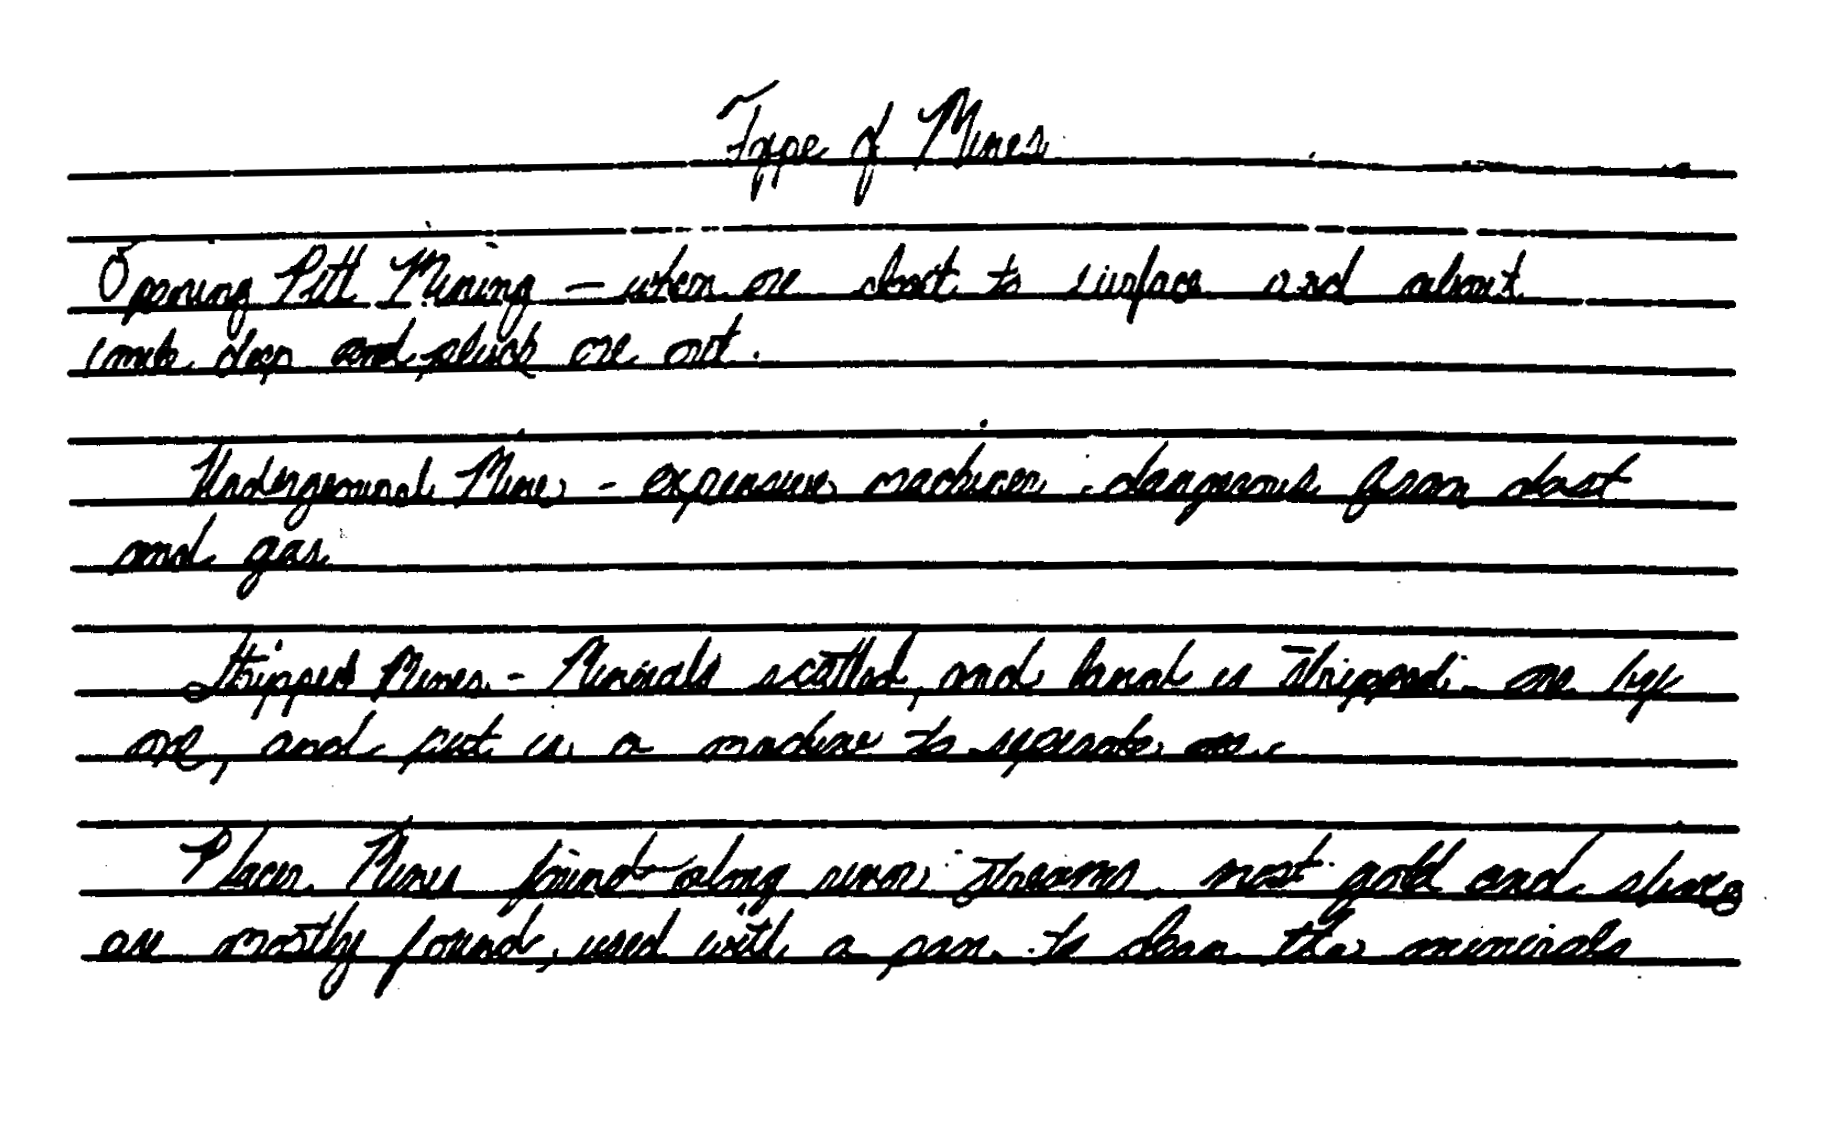 Type of Mines
Opening Pitt Mining – when ore closet to surface and about
1 mile deep and pluck ore out.
Underground Mines - expensive machines dangerous from dust
and gas
Stripped Mines - Minerals scattled, and land is stripped one by
one, and put in a machine to seperate ore.
Placer Mines found along rever streams most gold and
are mostly found, used with a pan to clean the minerals